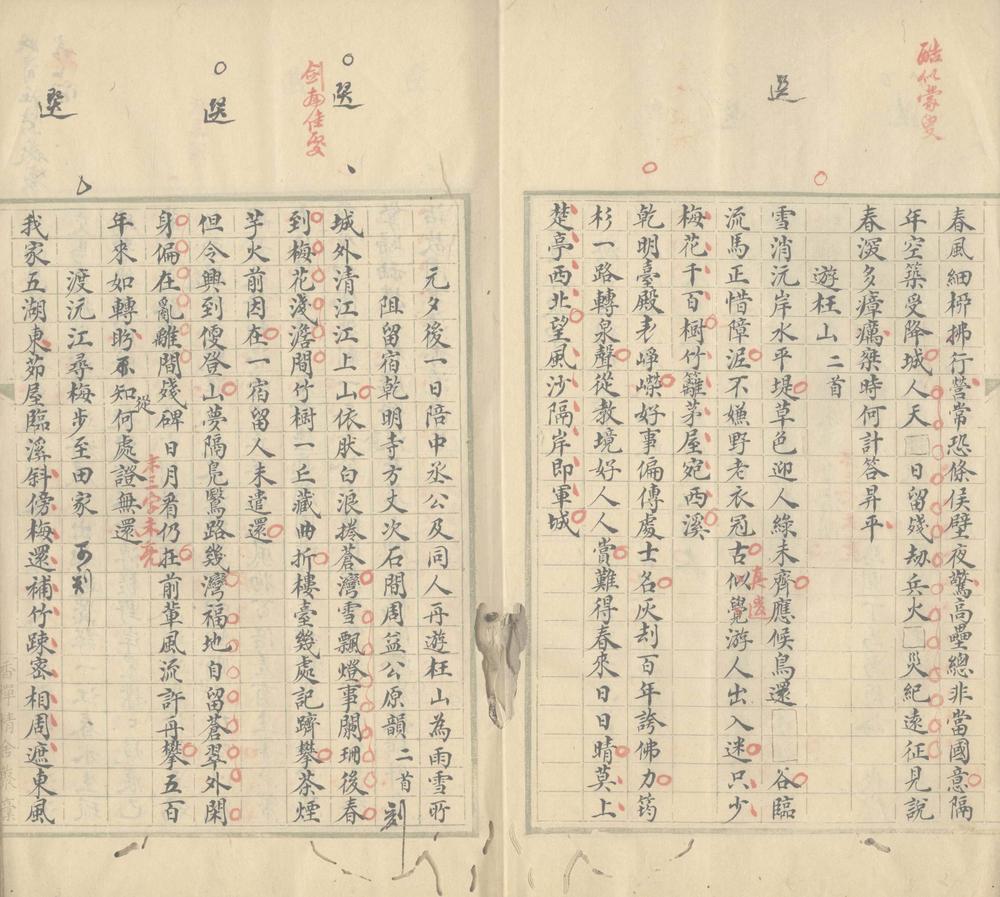 酷似蒙叟
選
春風細柳拂行營常恐條侯壁夜驚高壘總非當國意隔
年空築受降城人天日留殘劫兵火災紀遠征見說
春深多瘴癘樂時何計答昇平
遊枉山二首
雪消沅岸水平堤草色迎人綠未齊應候鳥還谷臨
流馬正惜障泥不嫌野老衣冠古似覺游人出入迷只少
梅花千百樹竹籬茅屋宛西溪
乾明臺殿耒崢嶸好事偏傳處士名灰刦百年誇佛力筠
杉一路轉泉聲從教境好人人賞難得春來日日晴莫上
楚亭西北望風沙隔岸即軍城
選
劍南佳處
選
選
元夕後一日陪中丞公及同人再遊枉山為雨雪所
阻留宿乾明寺方丈次石間周益公原韻二首刻
城外清江江上山依肰白浪捲蒼灣雪飄燈事闌珊後春
到梅花淺澹間竹樹一丘藏曲折樓臺幾處記躋攀茶煙
芋火前因在一宿留人未遣還
但令興到便登山夢隔鳧鷖路幾灣福地自留蒼翠外閑
身偏在亂離間殘碑日月看仍在前輩風流許再攀五百
年來如轉盻不知從何處證無還
末三字未亮
渡沅江尋梅步至田家 可刻
我家五湖東茆屋臨溪斜傍梅還補竹疎密相周遮東風